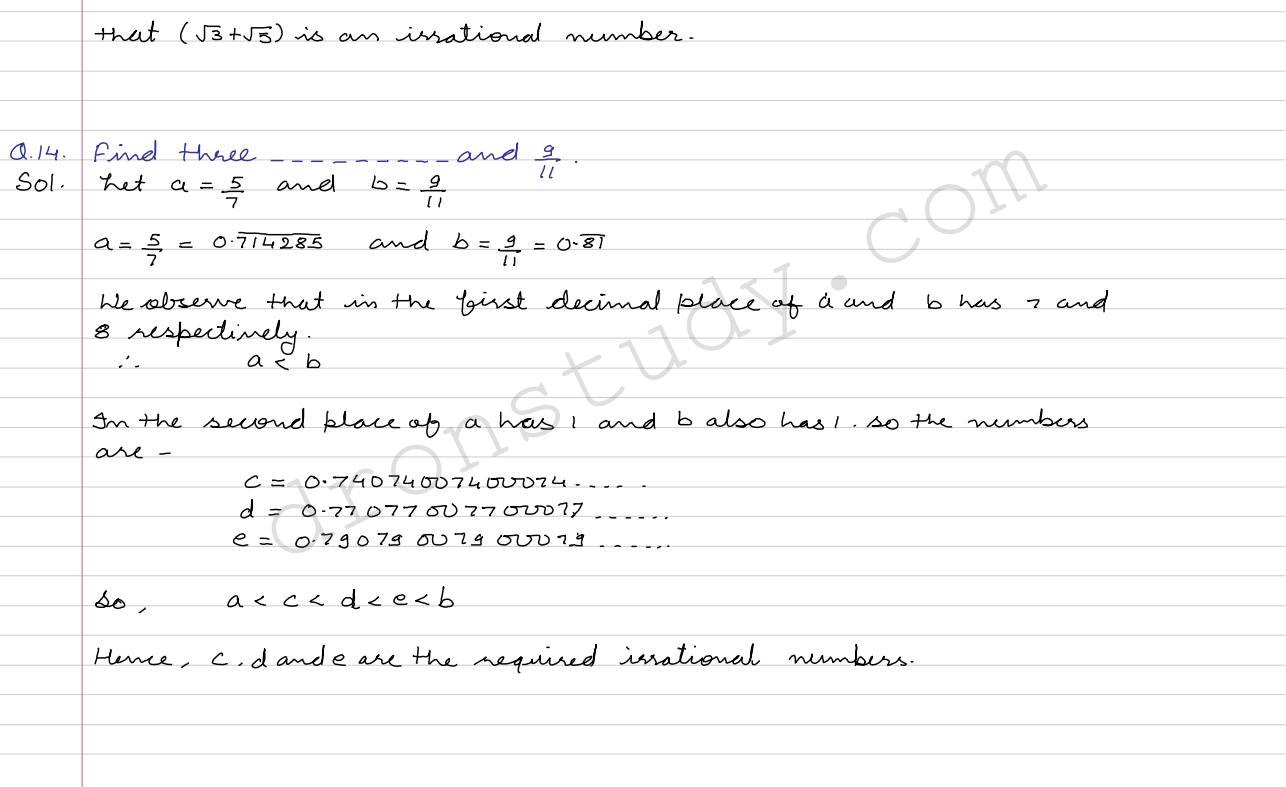 that (√3+√5) is an irrational number.
Q.14. Find three _ _ _ _ _ _ _ _ _ and 9/11.
Sol. Let a = 5/7 and b = 9/11
a = 5/7 = 0.7̅1̅4̅2̅8̅5̅ and b = 9/11 = 0.8̅1̅
We observe that in the first decimal place of a and b has 7 and
8 respectively.
∴ a < b
In the second place of a has 1 and b also has 1. so the numbers
are -
c = 0.74074007400074.....
d = 0.770770077000077......
e = 0.790790079000079......
So, a < c < d < e < b
Hence, c, d and e are the required irrational numbers.
dronstudy.com